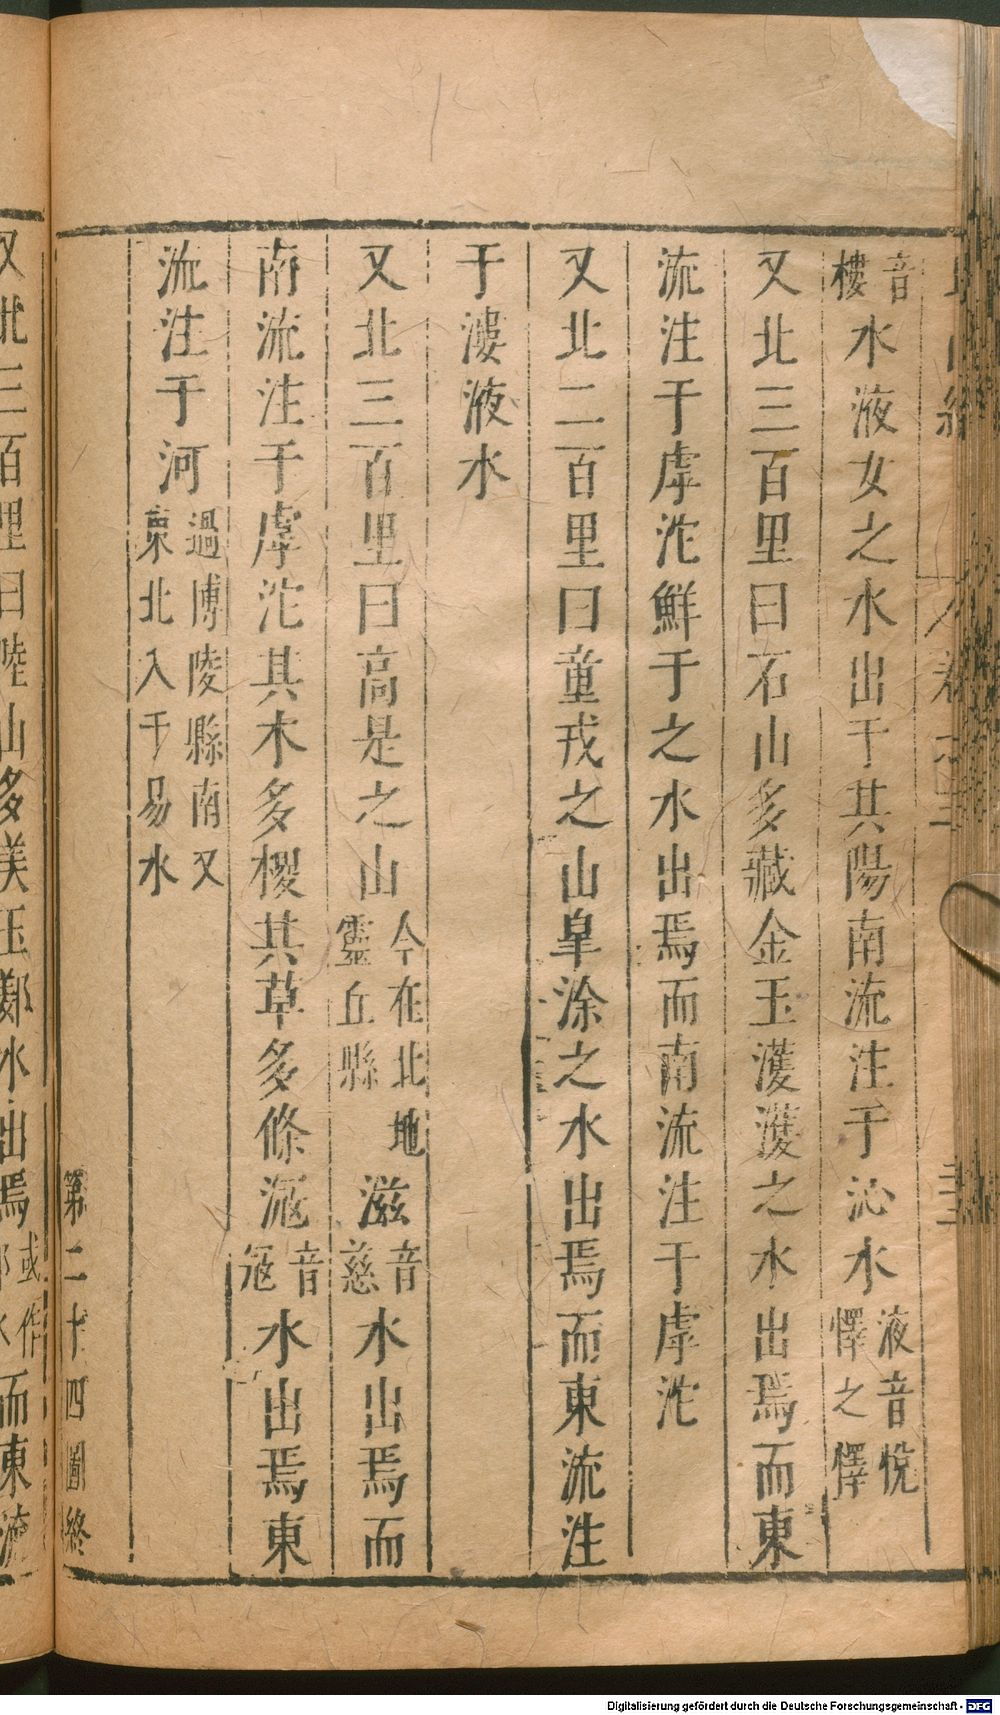 音樓水液女之水出于其陽南流注于沁水液音悅懌之懌
又北三百里曰石山多藏金玉濩濩之水出焉而東
流注于虖沱鮮于之水出焉而南流注于虖沱
又北二百里曰童戎之山皐涂之水出焉而東流注
于漊液水
又北三百里曰高是之山今在北地靈丘縣滋音慈水出焉而
南流注于虖沱其木多椶其草多條滱音寇水出焉東
流注于河過博陵縣南又東北入于易水
第二十四圖終
又北三百里曰陸山多美玉𨞪水出焉或作水而東流
Digitalisierung gefördert durch die Deutsche Forschungsgemeinschaft - DFG